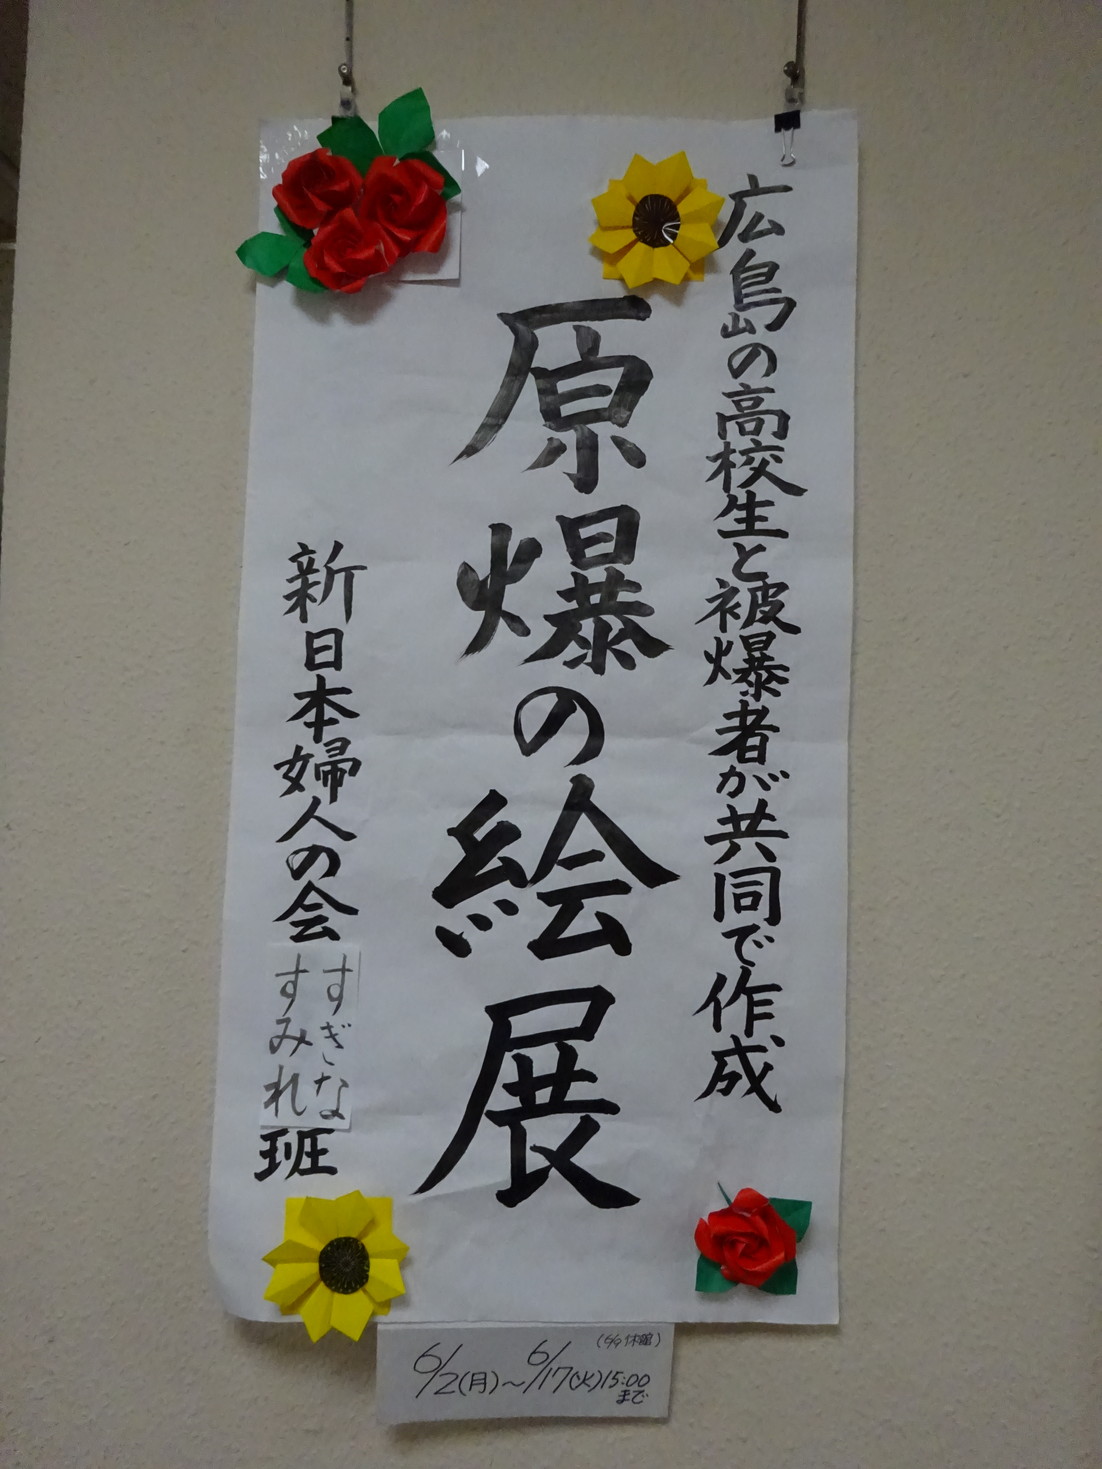 広島の高校生と被爆者が共同で作成
原爆の絵展
新日本婦人の会
すぎな
すみれ
班
(6/9休館)
6/2(月)～6/17(火)15:00
まで